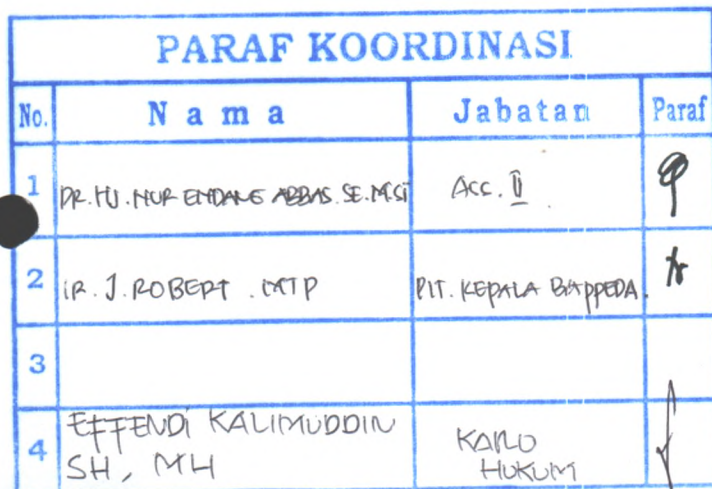 PARAF KOORDINASI
No. Nama Jabatan Paraf
1 DR. HJ. NUR ENDANG ABBAS. SE. M.Si Ass. II
2 IR. J. ROBERT . MTP PlT. KEPALA BAPPEDA.
3
4 EFFENDI KALIMUDDIN
SH, MH
KARO
HUKUM